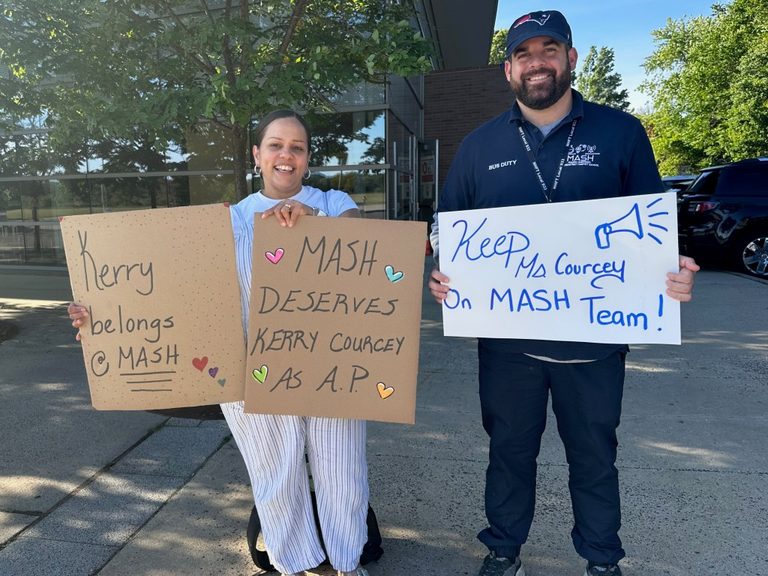 Kerry
belongs
@ MASH
MASH
DESERVES
KERRY COURCEY
AS A.P.
BUS DUTY
MASH
Keep Ms Courcey
On MASH Team!